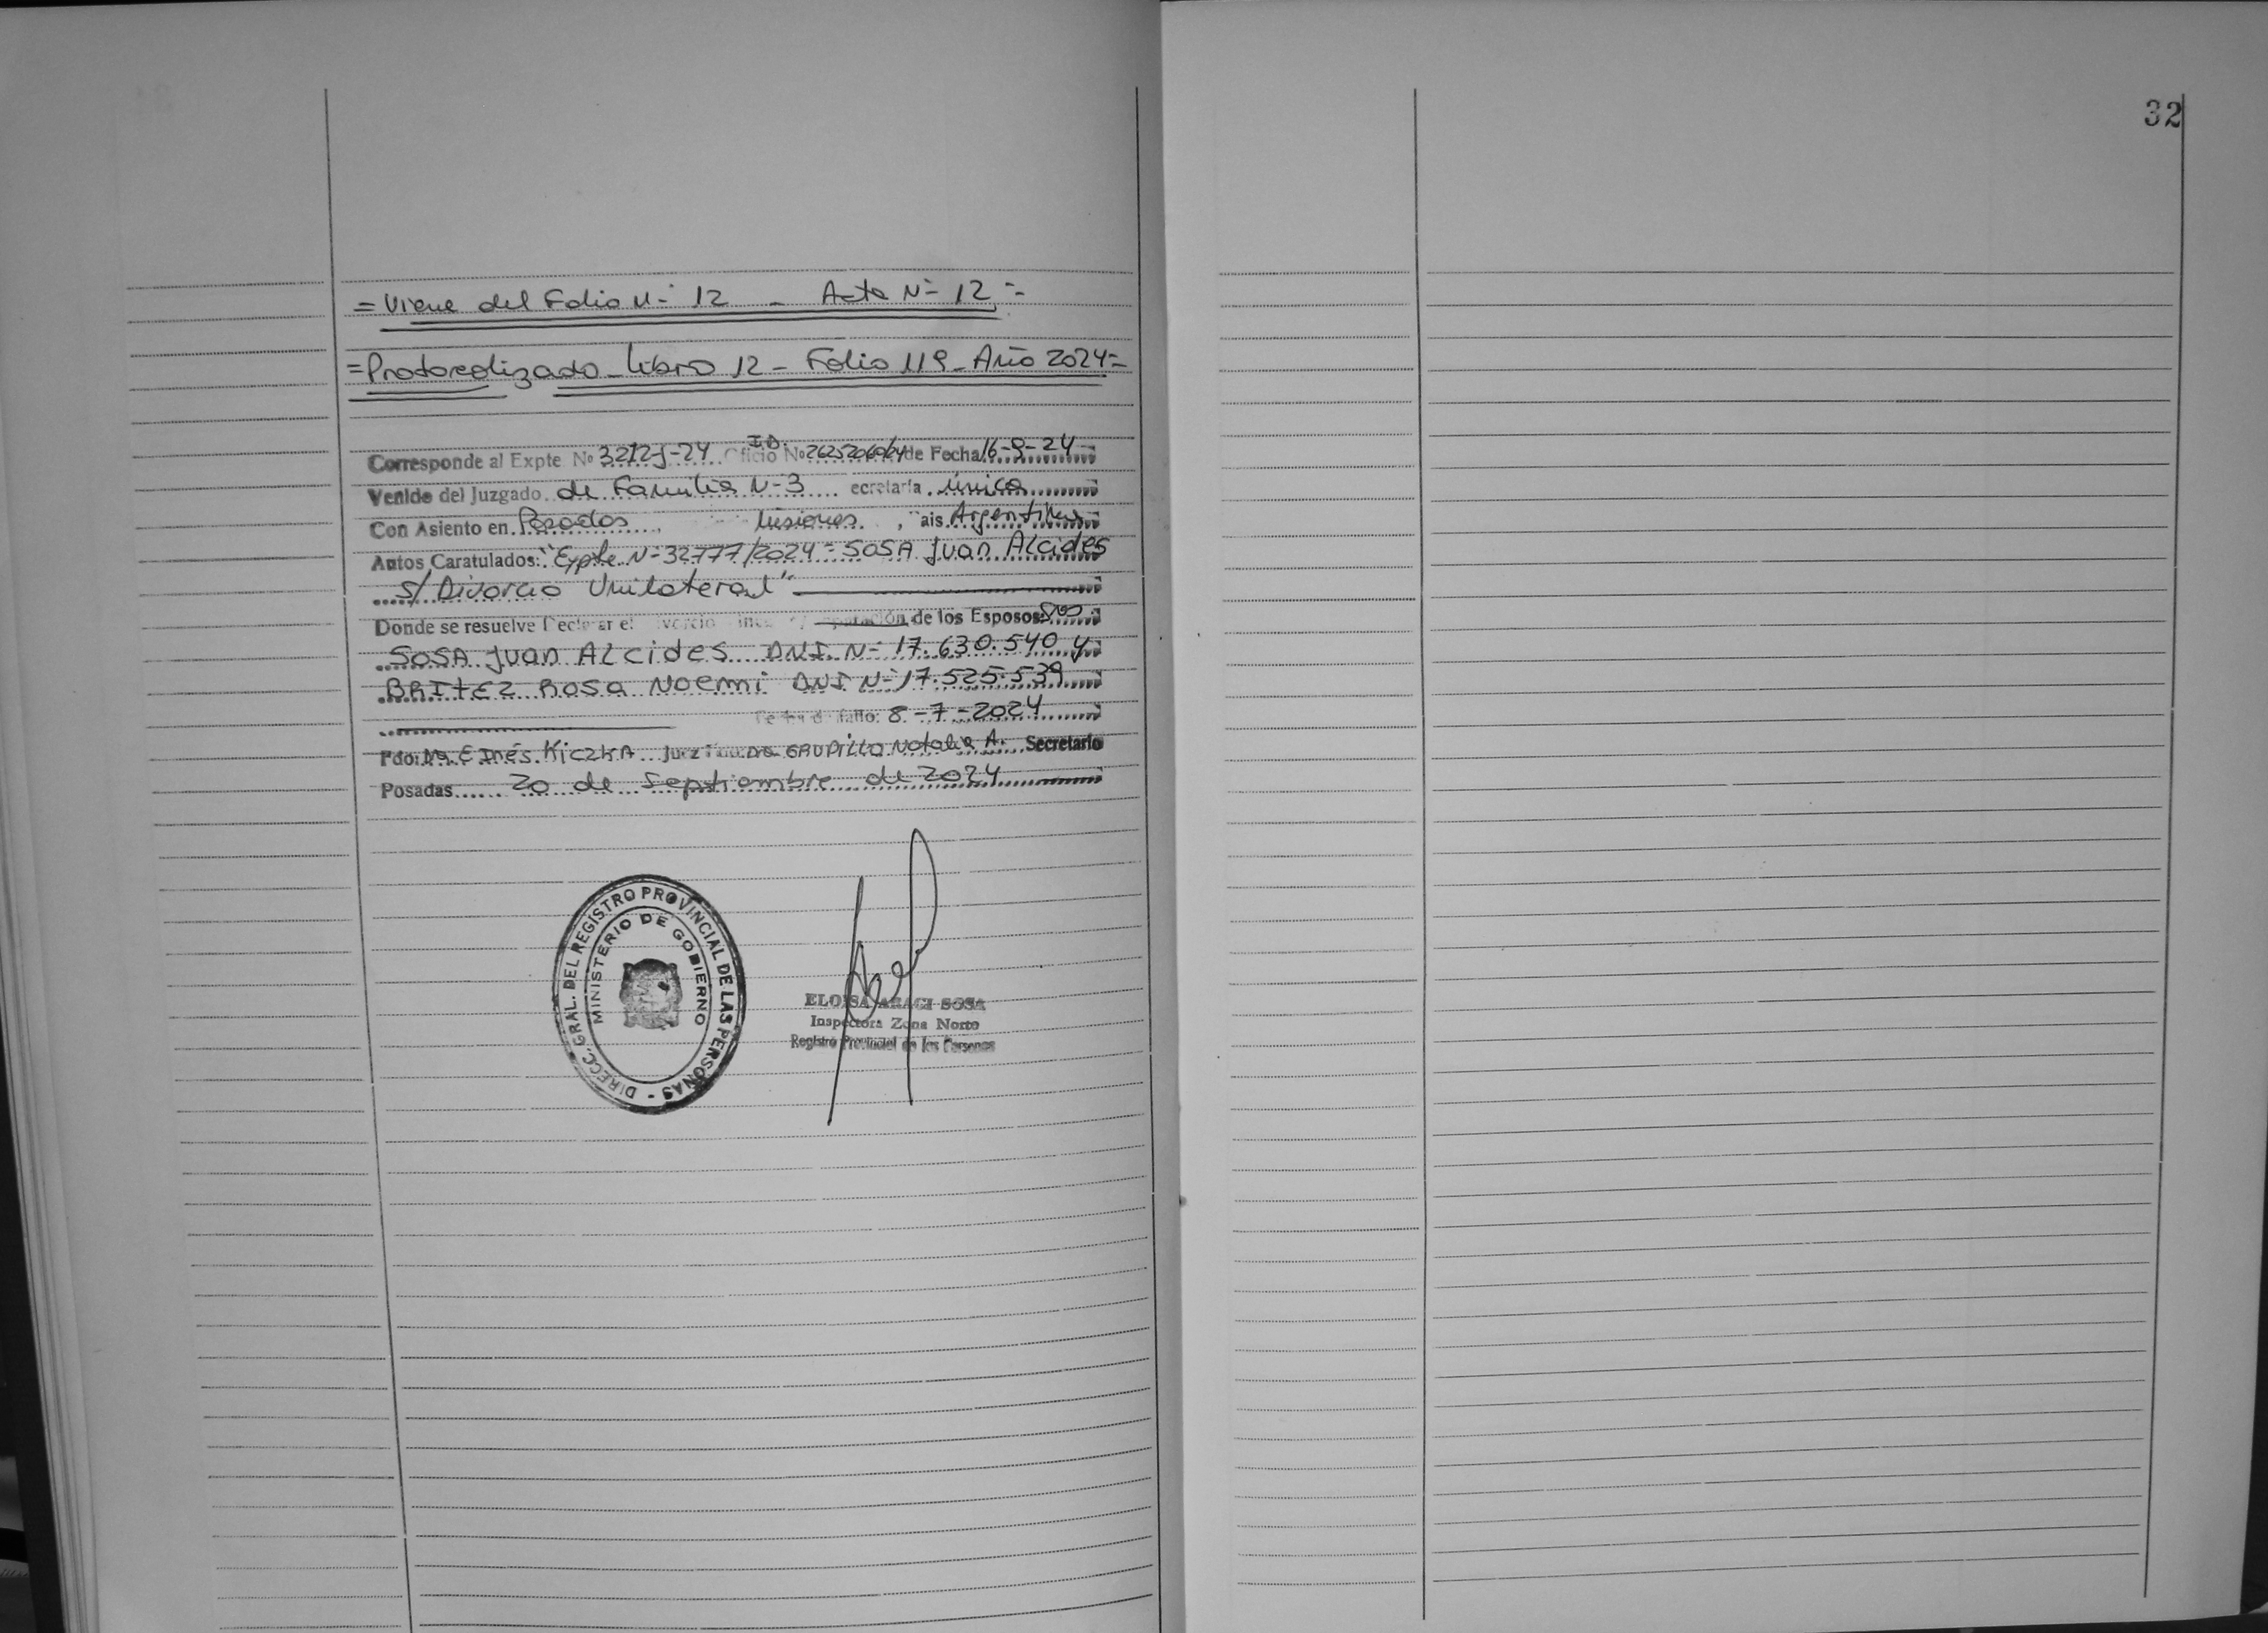 32
= Viene del Folio N° 12 - Acta N° 12 =
= Protocolizado - Libro 12 - Folio 119 - Año 2024 =
Corresponde al Expte No 3212-J-24 I.D. Oficio No de Fecha 16-9-24
Venido del Juzgado de Familia N-3 ecretaría única
Con Asiento en Posadas Misiones, ais Argentina
Autos Caratulados: "Expte N-32777/2024 - SOSA Juan Alcides
s/ Divorcio Unilateral"
Donde se resuelve Declarar el ivorcio de los Esposos:
SOSA Juan Alcides DNI N- 17.630.540 y
BRITEZ Rosa Noemi DNI N- 17.525.539
Fecha de fallo: 8-7-2024
Fdo: Dra E Inés Kiczka Juez Natalia A. Secretario
Posadas 20 de Septiembre de 2024
DIRECC. GRAL. DEL REGISTRO PROVINCIAL DE LAS PERSONAS -
MINISTERIO DE GOBIERNO
ELOISA ARACI SOSA
Inspectora Zona Norte
Registro Provincial de las Personas